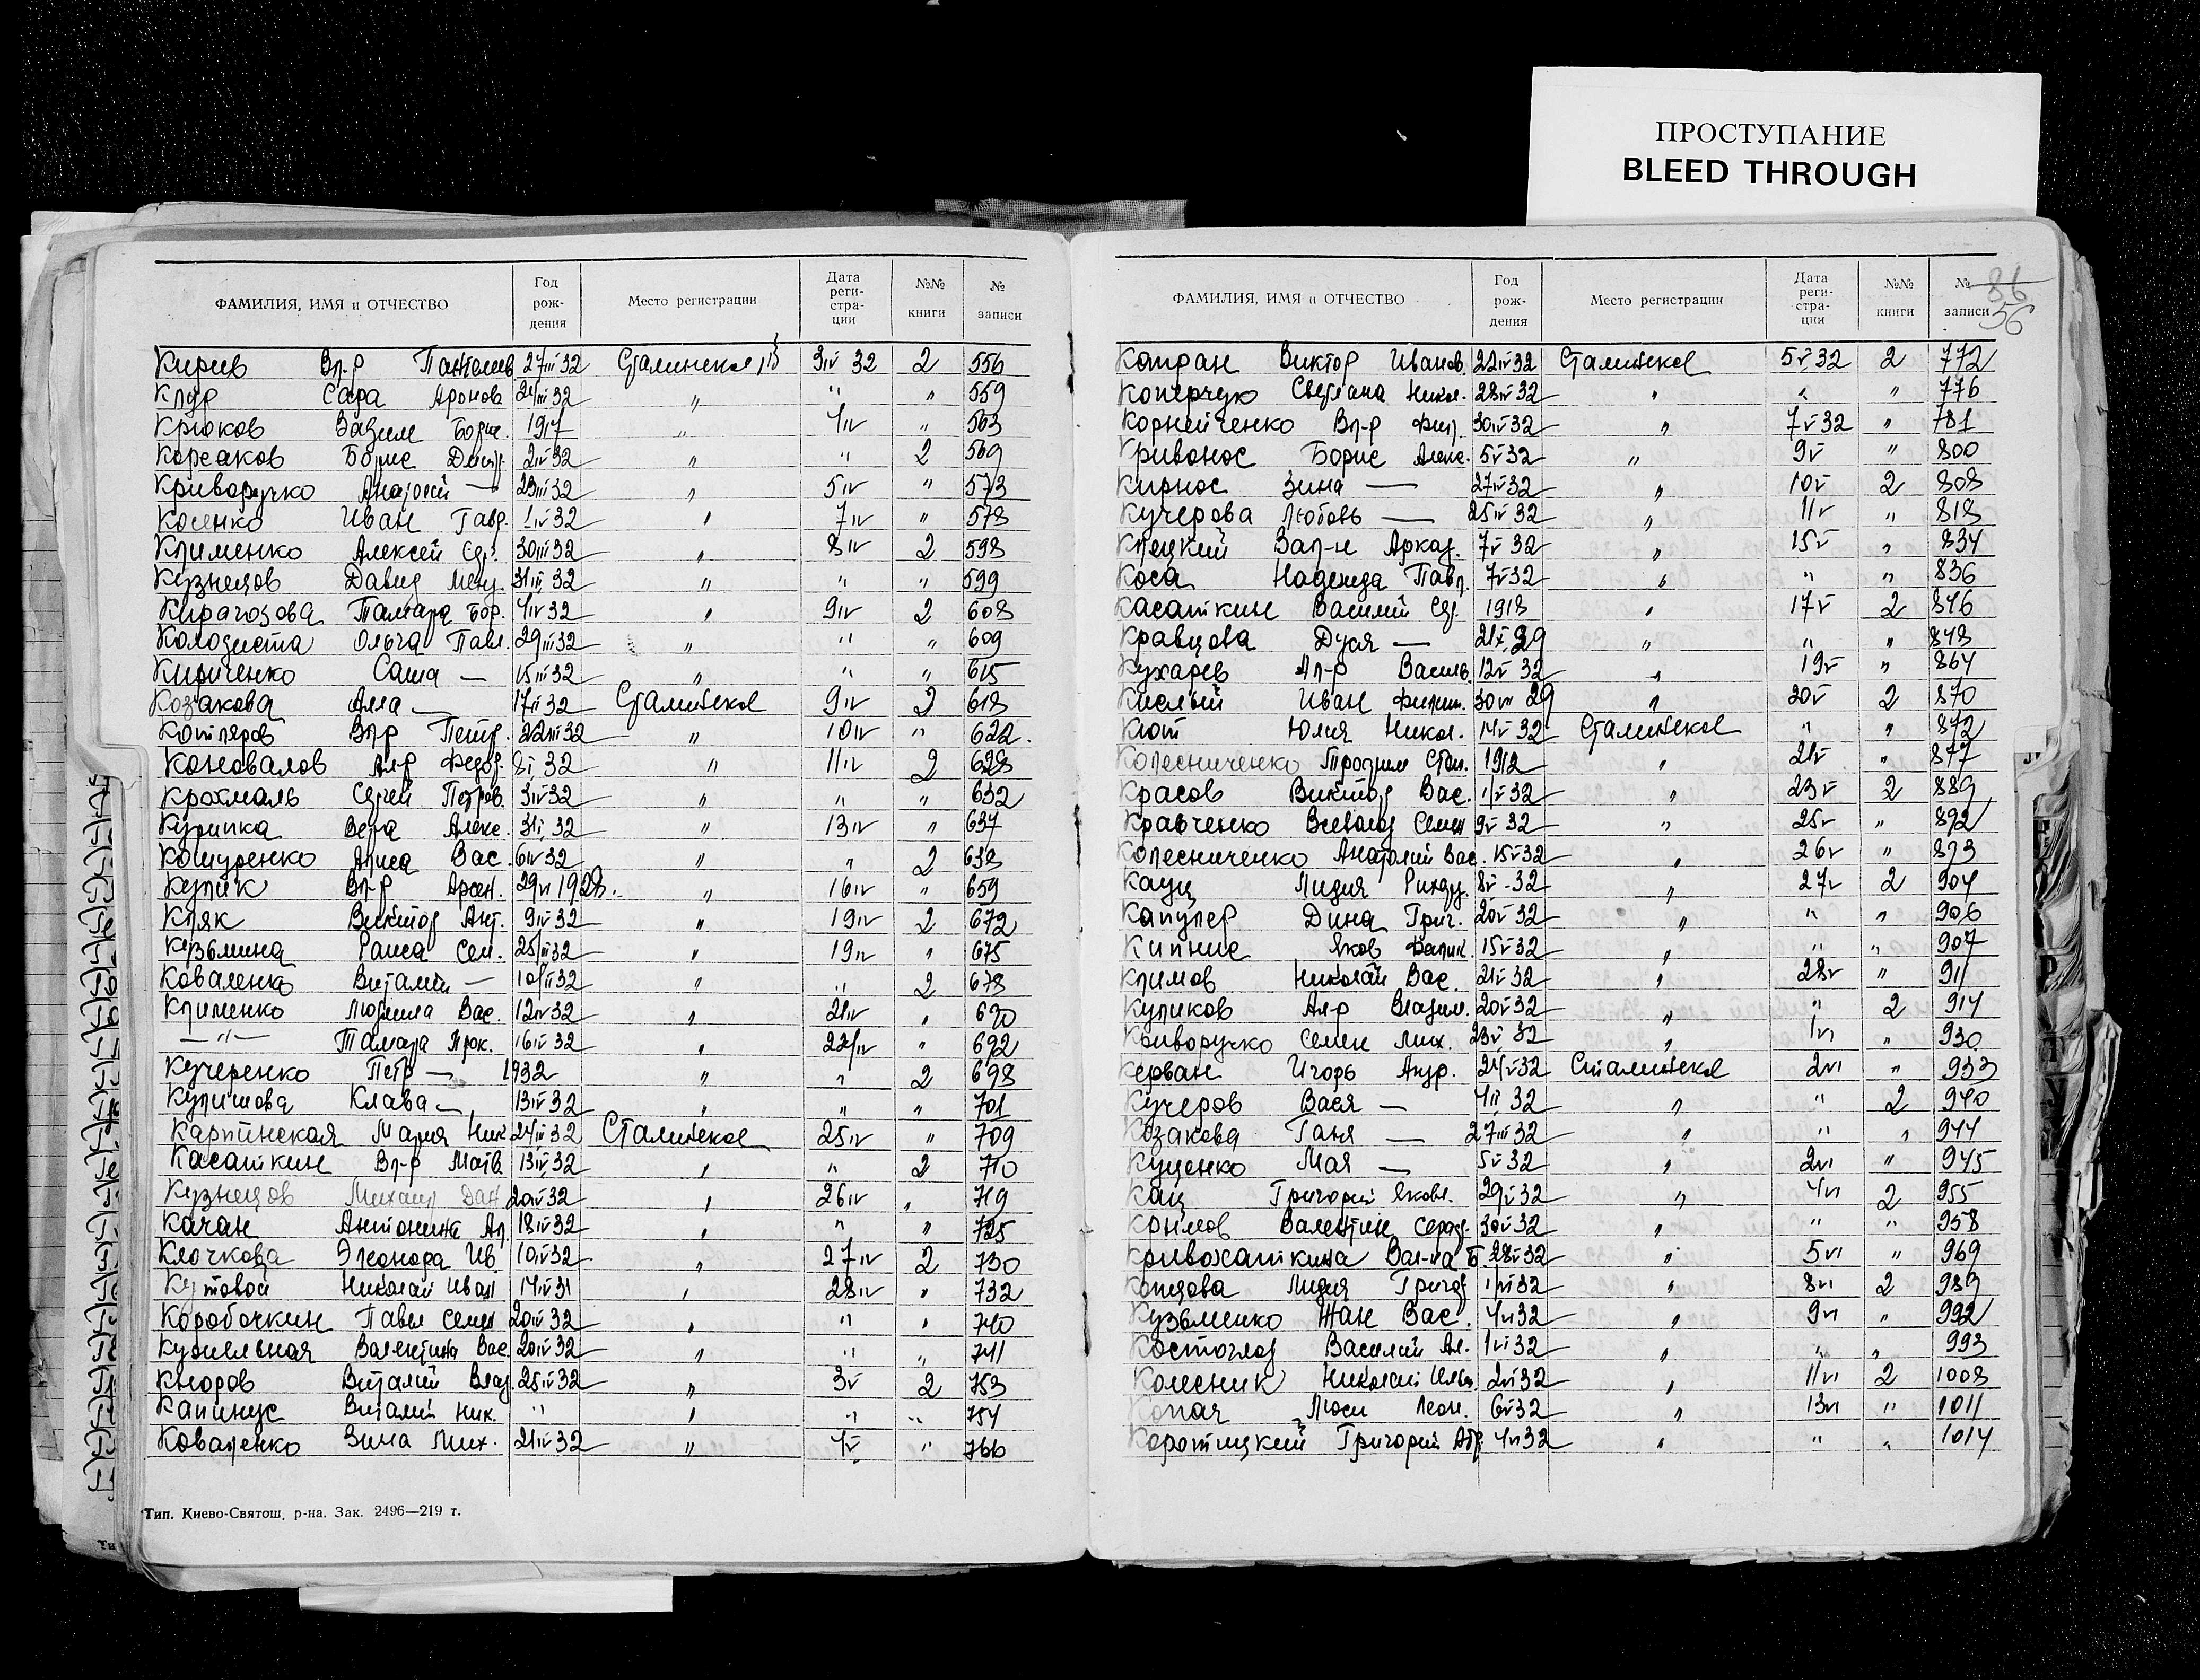 ПРОСТУПАНИЕ
BLEED THROUGH
ФАМИЛИЯ, ИМЯ и ОТЧЕСТВО Год рождения Место регистрации Дата регистрации №№ книги № записи
Киреев Вл-р Пантелеев. 27/III 32 Сталинская 3/IV 32 2 556
Клур Сара Аронова 21/III 32 " " " 559
Крюков Вадим Борис. 1917 " 4/IV " 563
Корсаков Борис Дмитр. 2/IV 32 " " 2 569
Криворучко Анатолий — 23/III 32 " 5/IV " 573
Косенко Иван Гавр. 1/IV 32 " 7/IV " 578
Клименко Алексей Сер. 30/III 32 " 8/IV 2 598
Кузнецов Давид Менд. 31/III 32 " " " 599
Кирагозова Тамара Бор. 4/IV 32 " 9/IV 2 608
Колодиста Ольга Павл. 29/III 32 " " " 609
Кириченко Саша — 15/III 32 " " " 615
Козакова Алла — 17/II 32 Сталинское 9/IV 2 618
Котляров Вл-р Петр. 22/III 32 " 10/IV " 622.
Коновалов Ал-р Федор. 8/I 32 " 11/IV 2 628
Крохмаль Сергей Петров. 3/IV 32 " " " 632
Курилка Вера Алекс. 31/I 32 " 13/IV " 637
Кошуренко Алиса Вас. 6/IV 32 " " 2 638
Кулик Вл-р Арсен. 29/VI 1928. " 16/IV " 659
Кляк Виктор Ант. 9/IV 32 " 19/IV 2 672
Кузьмина Раиса Сем. 25/III 32 " 19/IV " 675
Коваленко Виталий — 10/III 32 " " 2 678
Клименко Людмила Вас. 12/IV 32 " 21/IV " 690
— " — Тамара Прок. 16/IV 32 " 22/IV " 692
Кучеренко Петр — 1932 " " 2 698
Кулишова Клава — 13/IV 32 " " " 701
Карпинская Мария Ник. 24/III 32 Сталинское 25/IV " 709
Касаткин Вл-р Матв. 13/IV 32 " " 2 710
Кузнецов Михаил Дан. 20/IV 32 " 26/IV " 719
Качан Антонина Ал. 18/IV 32 " " " 725
Клочкова Элеонора Ив. 10/IV 32 " 27/IV 2 730
Кутовой Николай Иван 14/IV 31 " 28/IV " 732
Коробочкин Павел Семен 20/IV 32 " " " 740
Купельная Валентина Вас. 20/IV 32 " " " 741
Кноров Виталий Влад. 25/IV 32 " 3/V 2 753
Калинус Виталий Ник. " " " " 754
Коваленко Зина Мих. 21/IV 32 " 4/V " 766
Тип. Киево-Святош. р-на. Зак. 2496—219 т.
86
56
ФАМИЛИЯ, ИМЯ и ОТЧЕСТВО Год рождения Место регистрации Дата регистрации №№ книги № записи
Компан Виктор Иванов. 22/IV 32 Сталинское 5/V 32 2 772
Коперчук Светлана Никол. 28/IV 32 " " " 776
Корнейченко Вл-р Фил. 30/IV 32 " 7/V 32 " 781
Кривонос Борис Алекс. 5/V 32 " 9/V " 800
Кирнос Зина — 27/IV 32 " 10/V 2 808
Кучерова Любовь — 25/IV 32 " 11/V " 818
Клецкий Вал-н Аркад. 7/V 32 " 15/V " 834
Коса Надежда Павл. 7/V 32 " " " 836
Касаткин Василий Сер. 1918 " 17/V 2 846
Кравцова Дуся — 21/X 29 " " " 848
Кухарев Ал-р Василь. 12/V 32 " 19/V " 864
Кислый Иван Филип. 30/VII 29 " 20/V 2 870
Кют Юлия Никол. 14/V 32 Сталинское " " 872
Колесниченко Трофим Степ. 1912 " 21/V " 877
Красов Виктор Вас. 1/V 32 " 23/V 2 889
Кравченко Всеволод Семен 9/V 32 " 25/V " 892
Колесниченко Анатолий Вас. 15/V 32 " 26/V " 893
Кауц Лидия 8/V-32 " 27/V 2 904
Капулер Дина Григ. 20/V 32 " " " 906
Кипнис Яков Фалик. 15/V 32 " " " 907
Климов Николай Вас. 21/V 32 " 28/V " 911
Куликов Ал-р Владим. 20/V 32 " " 2 914
Криворучко Семен Мих. 23/V 32 " 1/VI " 930
Керван Игорь Андр. 24/V 32 Сталинское 2/VI " 933
Кучеров Вася — 4/II 32 " " 2 940
Козакова Ганя — 27/III 32 " " " 944
Куценко Мая — 5/V 32 " 2/VI " 945
Кац Григорий Яковл. 29/V 32 " 4/VI 2 955
Крымов Валентин Серг. 30/V 32 " " " 958
Кривохаткина Вал-на Б. 28/V 32 " 5/VI " 969
Копцова Лидия Григор 1/VI 32 " 8/VI 2 989
Кузьменко Жан Вас. 4/VI 32 " 9/VI " 992
Костоглод Василий Ал. 1/VI 32 " " " 993
Колесник Николай Ильи. 2/VI 32 " 11/VI 2 1008
Копач Люси Леон. 6/V 32 " 13/VI " 1011
Коротицкий Григорий Абр. 4/VI 32 " " " 1014